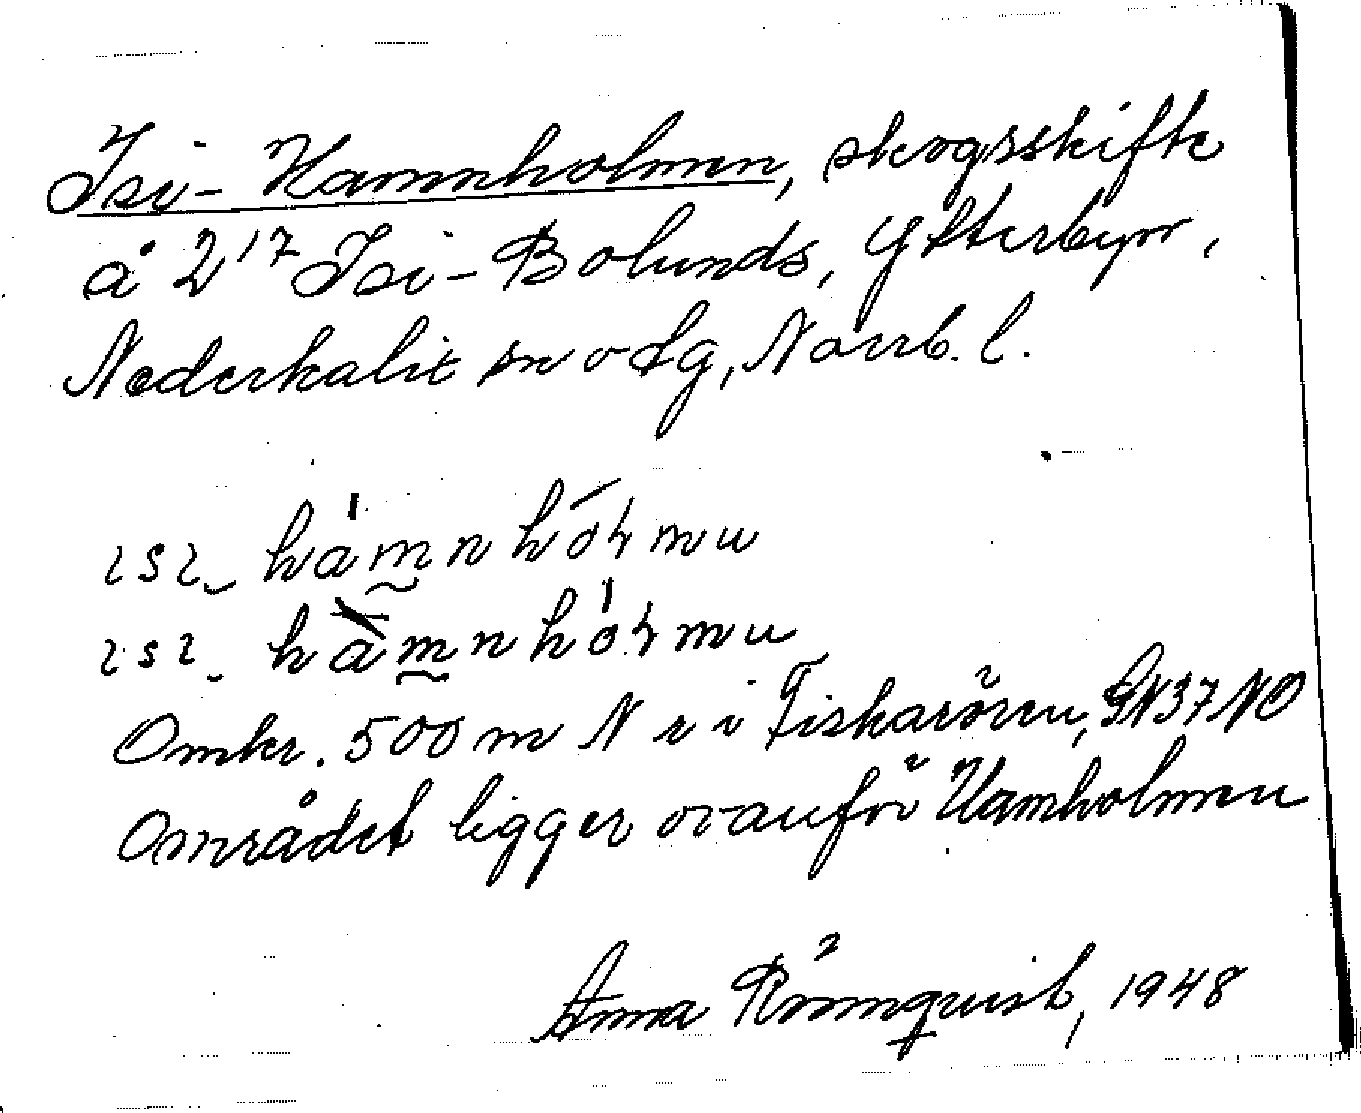 Isi-Hamnholmen, skogsskifte
å 2¹⁷ Isi-Bolunds, Ytterbyn,
Nederkalix sn o tg, Norrb. l.
ısı‿ hamnhoɽmu
ısı‿ hàmnhóɽmu
Omkr. 500 m N r i Fiskarören, 37 NO
Området ligger ovanför Hamholmen
Anna Rönnqvist, 1948